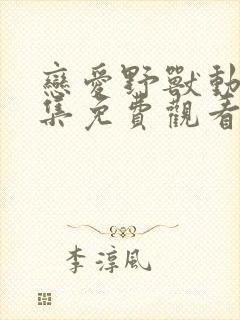 戀愛野獸動
集免費觀看
李淳風